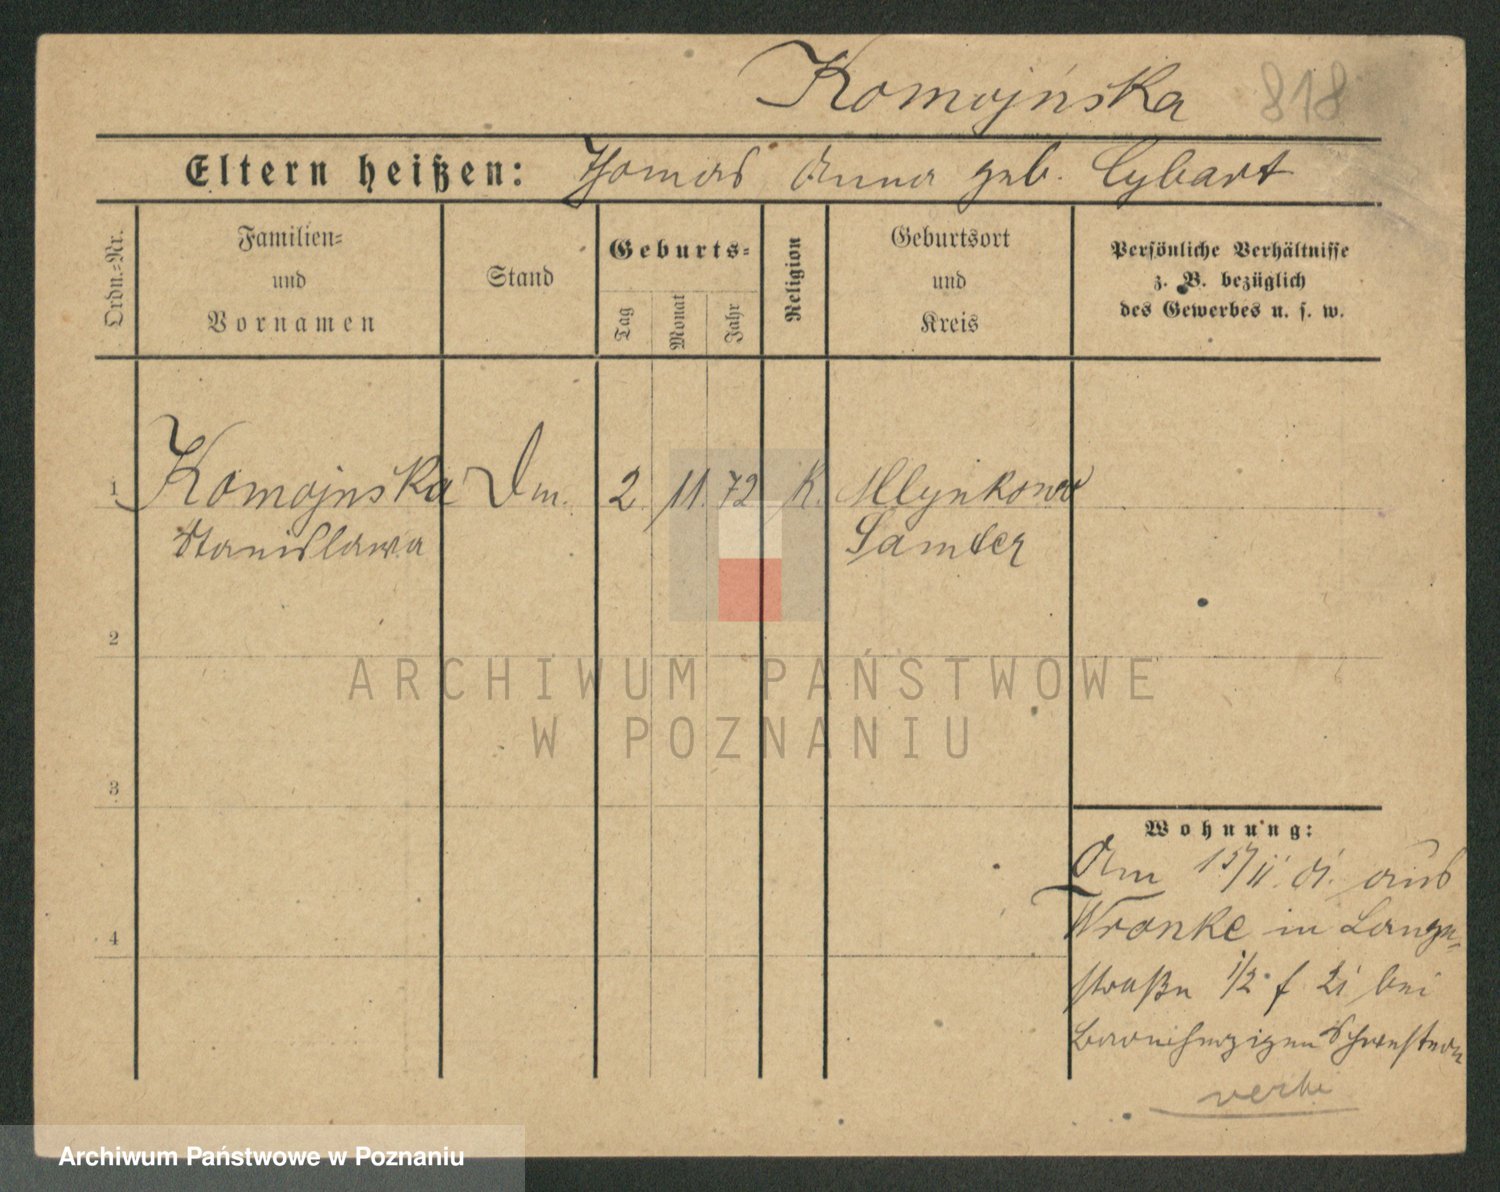 Komojńska 818
Eltern heißen: Thomas Anna geb. Cybart
Ordn.=Nr.
Familien=
und
Vornamen
Stand
Geburts=
Tag
Monat
Jahr
Religion
Geburtsort
und
Kreis
Persönliche Verhältnisse
z. B. bezüglich
des Gewerbes u. s. w.
1 Komojnska Dm. 2 11. 72 K. Mlynkowo
Stanislawa Samter
2
3
4
Wohnung:
Am 15/11. 01. aus
Wronke in Lange-
straße 1/2 bei
Barmherzigen Schwestern
ARCHIWUM PAŃSTWOWE
W POZNANIU
Archiwum Państwowe w Poznaniu